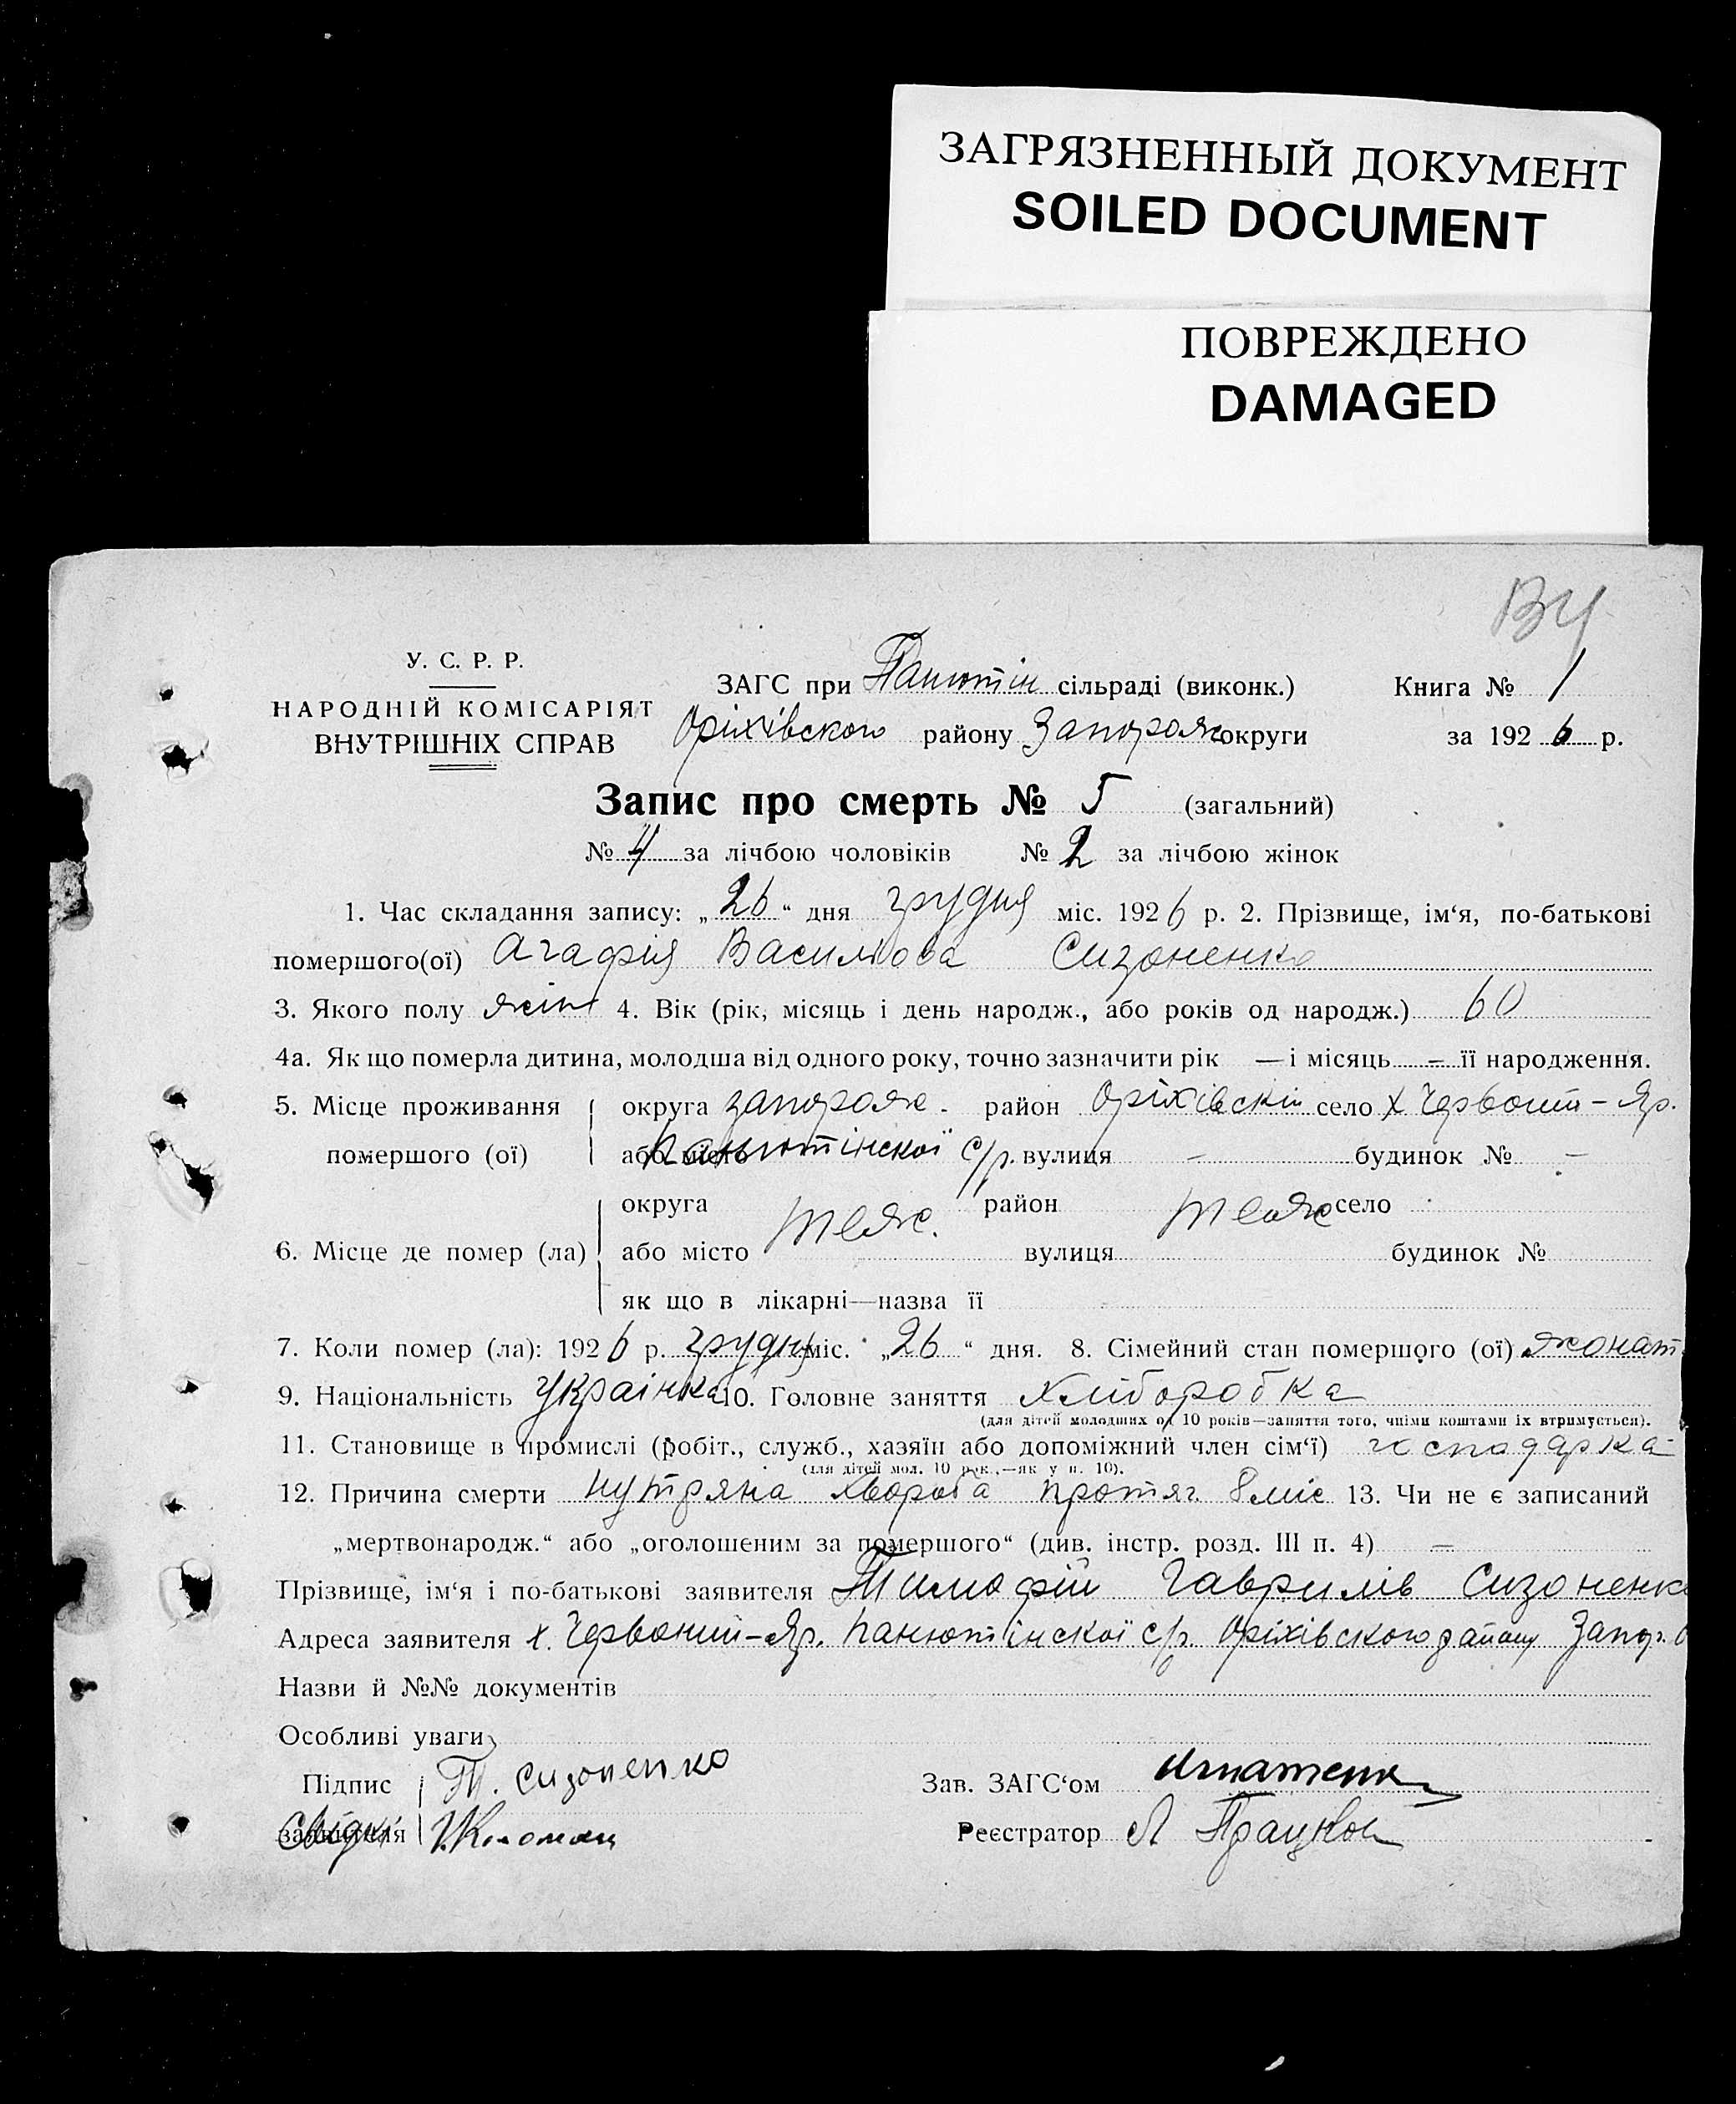 ЗАГРЯЗНЕННЫЙ ДОКУМЕНТ
SOILED DOCUMENT
ПОВРЕЖДЕНО
DAMAGED
У. С. Р. Р.
НАРОДНІЙ КОМІСАРІЯТ
ВНУТРІШНІХ СПРАВ
ЗАГС при Панютін сільраді (виконк.) Книга № 1
Оріхівского району Запорояс округи за 1926 р.
Запис про смерть № 5 (загальний)
№ 4 за лічбою чоловіків № 2 за лічбою жінок
1. Час складання запису: „26“ дня грудня міс. 1926 р. 2. Прізвище, ім‘я, по-батькові
помершого(ої) Агафія Василіова Сизоненко
3. Якого полу жін 4. Вік (рік, місяць і день народж., або років од народж.) 60
4а. Як що померла дитина, молодша від одного року, точно зазначити рік — і місяць — її народження.
5. Місце проживання округа запорож. район Оріхівскій село х Червоний-Яр.
помершого (ої) або місто Панютінскої с/р. вулиця – будинок № –
округа теж. район теж село
6. Місце де помер (ла) або місто вулиця будинок №
як що в лікарні—назва її
7. Коли помер (ла): 1926 р. грудня міс. „26“ дня. 8. Сімейний стан помершого (ої) жонат.
9. Національність Українка 10. Головне заняття Хліборобка
(для дітей молодших од 10 років—заняття того, чиїми коштами їх втримується).
11. Становище в промислі (робіт., служб., хазяїн або допоміжний член сім‘ї) господарка
(для дітей мол. 10 рок.,—як у п. 10).
12. Причина смерти нутряна хвороба протяг. 8 міс 13. Чи не є записаний
„мертвонародж.“ або „оголошеним за помершого“ (див. інстр. розд. III п. 4) —
Прізвище, ім‘я і по-батькові заявителя Тимофій Гаврилів Сизоненко
Адреса заявителя х. Червоний-Яр. Панютінскої с/р. Оріхівского району Запор. о
Назви й №№ документів
Особливі уваги
Підпис Т. Сизоненко Зав. ЗАГС‘ом Игнатенк
заявителя Свідкі Реєстратор Л